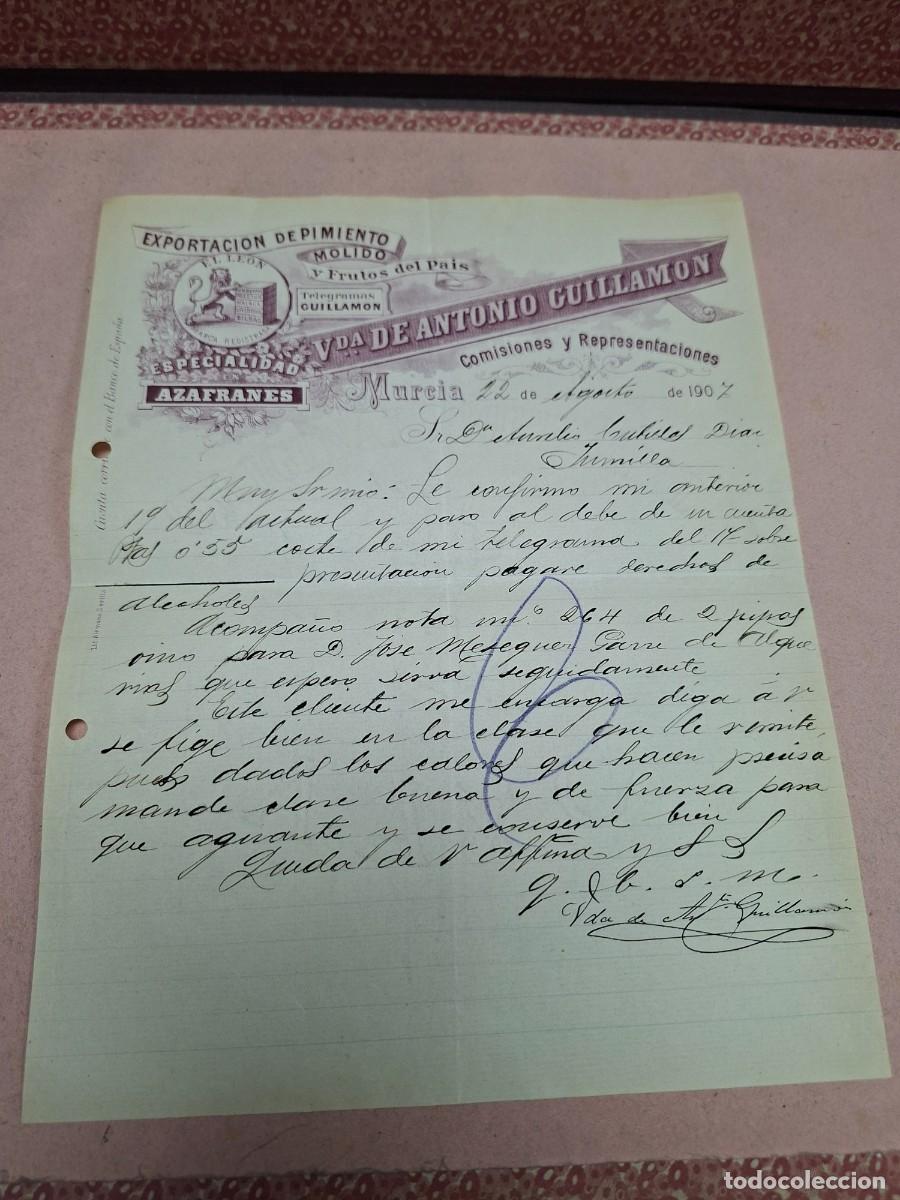 EXPORTACION DE PIMIENTO
MOLIDO
y Frutos del Pais
EL LEON
MARCA REGISTRADA
Telegramas
GUILLAMON
ESPECIALIDAD
EN
AZAFRANES
VDA DE ANTONIO GUILLAMON
Comisiones y Representaciones
Cuenta corriente con el Banco de España
Murcia 22 de Agosto de 1907
Sr Dn Aurelio Cutillas
Jumilla
Muy Sr mio: Le confirmo mi anterior
19 del actual y paso al debe de su cuenta
Ptas 0'55 coste de mi telegrama del 17 sobre
presentacion pagare derechos de
alcoholes
Acompaño nota nº 264 de 2 pipas
vino para D. José Meseguer de Alque
rias que espero sirva seguidamente
Este cliente me encarga diga á V
se fige bien en la clase que le remite,
pues dados los calores que hacen precisa
mande clase buena y de fuerza para
que aguante y se conserve bien
Queda de V affma y S S
q. b. s. m.
Vda de Antº Guillamón
todocoleccion